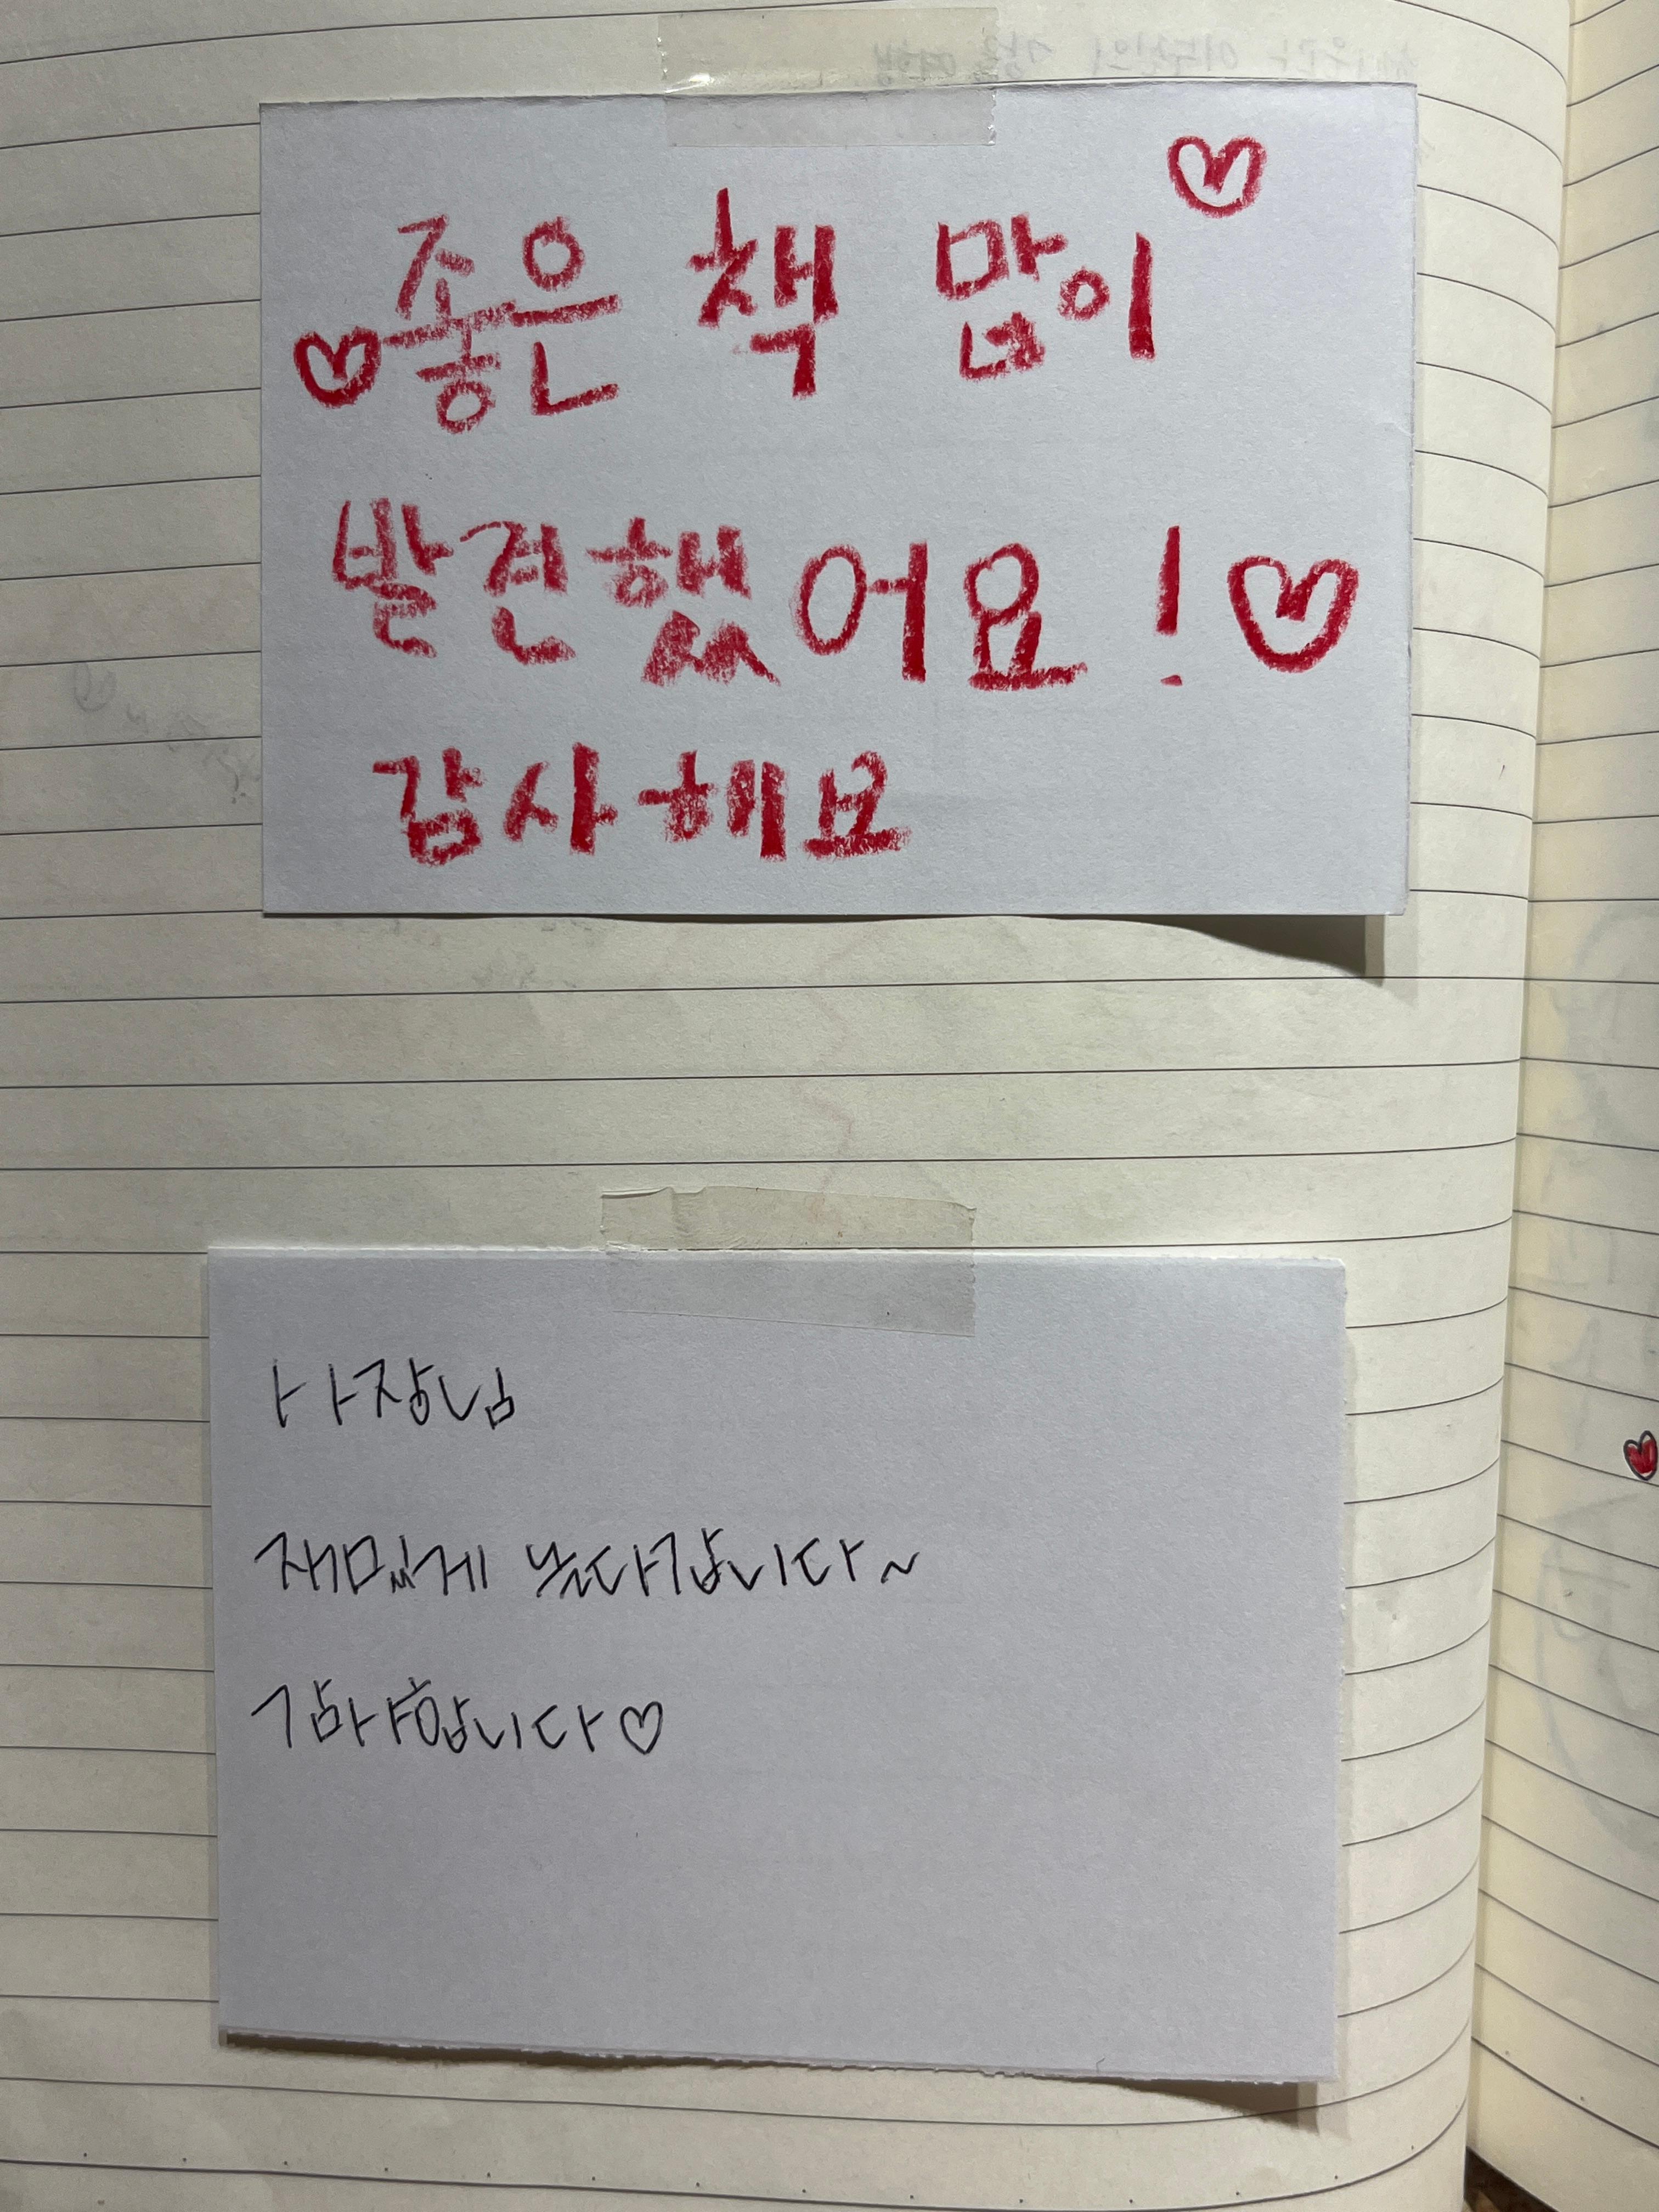 ♡좋은 책 많이♡
발견했어요!♡
감사해요
사장님
재밌게 놀다갑니다~
감사합니다♡